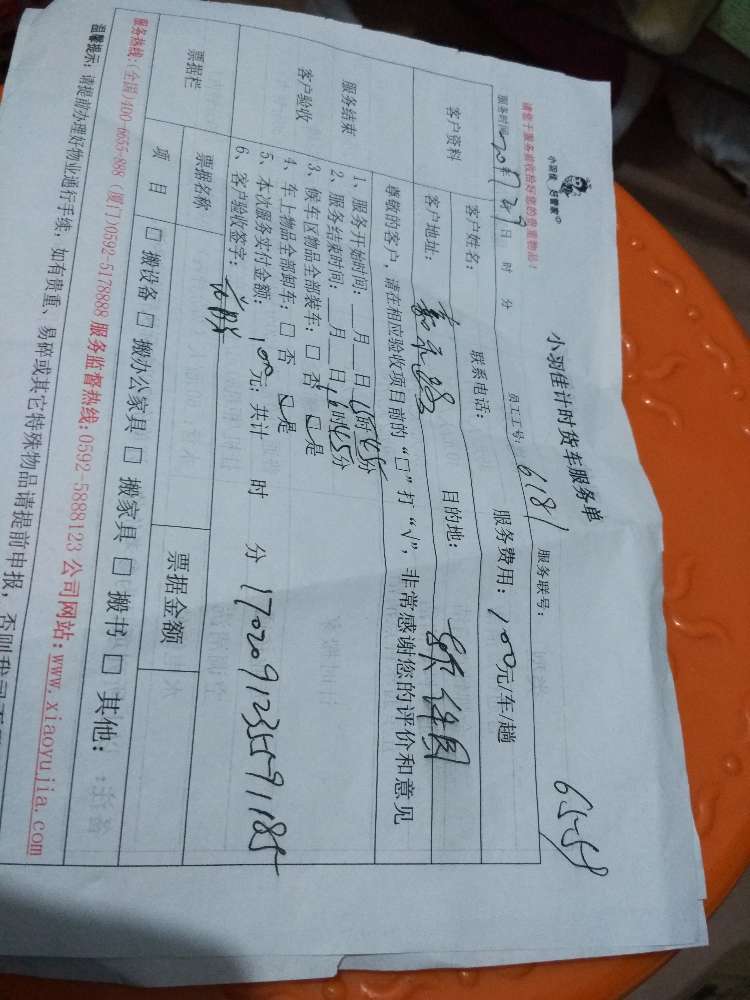 小羽佳 好管家
小羽佳计时货车服务单
6558
请您于服务前收拾好您的贵重物品!
服务时间 2017年 2 9日 时 分 员工工号: 6181 服务联号:
客户资料
客户姓名: 联系电话: 服务费用: 100元/车/趟
客户地址: 目的地:
尊敬的客户, 请在相应验收项目前的“□”打“√”, 非常感谢您的评价和意见
服务结束
客户验收
1、服务开始时间: __月__日 时45分
2、服务结束时间: __月__日 时45分
3、候车区物品全部装车: □ 否 □是
4、车上物品全部卸车: □ 否 □是
5、本次服务实付金额: 100元; 共计 时 分 17020912355591185
6、客户验收签字:
票据栏 票据名称 票据金额
项 目 □ 搬设备 □ 搬办公家具 □ 搬家具 □ 搬书 □ 其他:
服务热线:(全国)400-6655-888 (厦门)0592-5178888 服务监督热线:0592-5888123 公司网站:www.xiaoyujia.com
温馨提示: 请提前办理好物业通行手续, 如有贵重、易碎或其它特殊物品请提前申报, 否则我司不